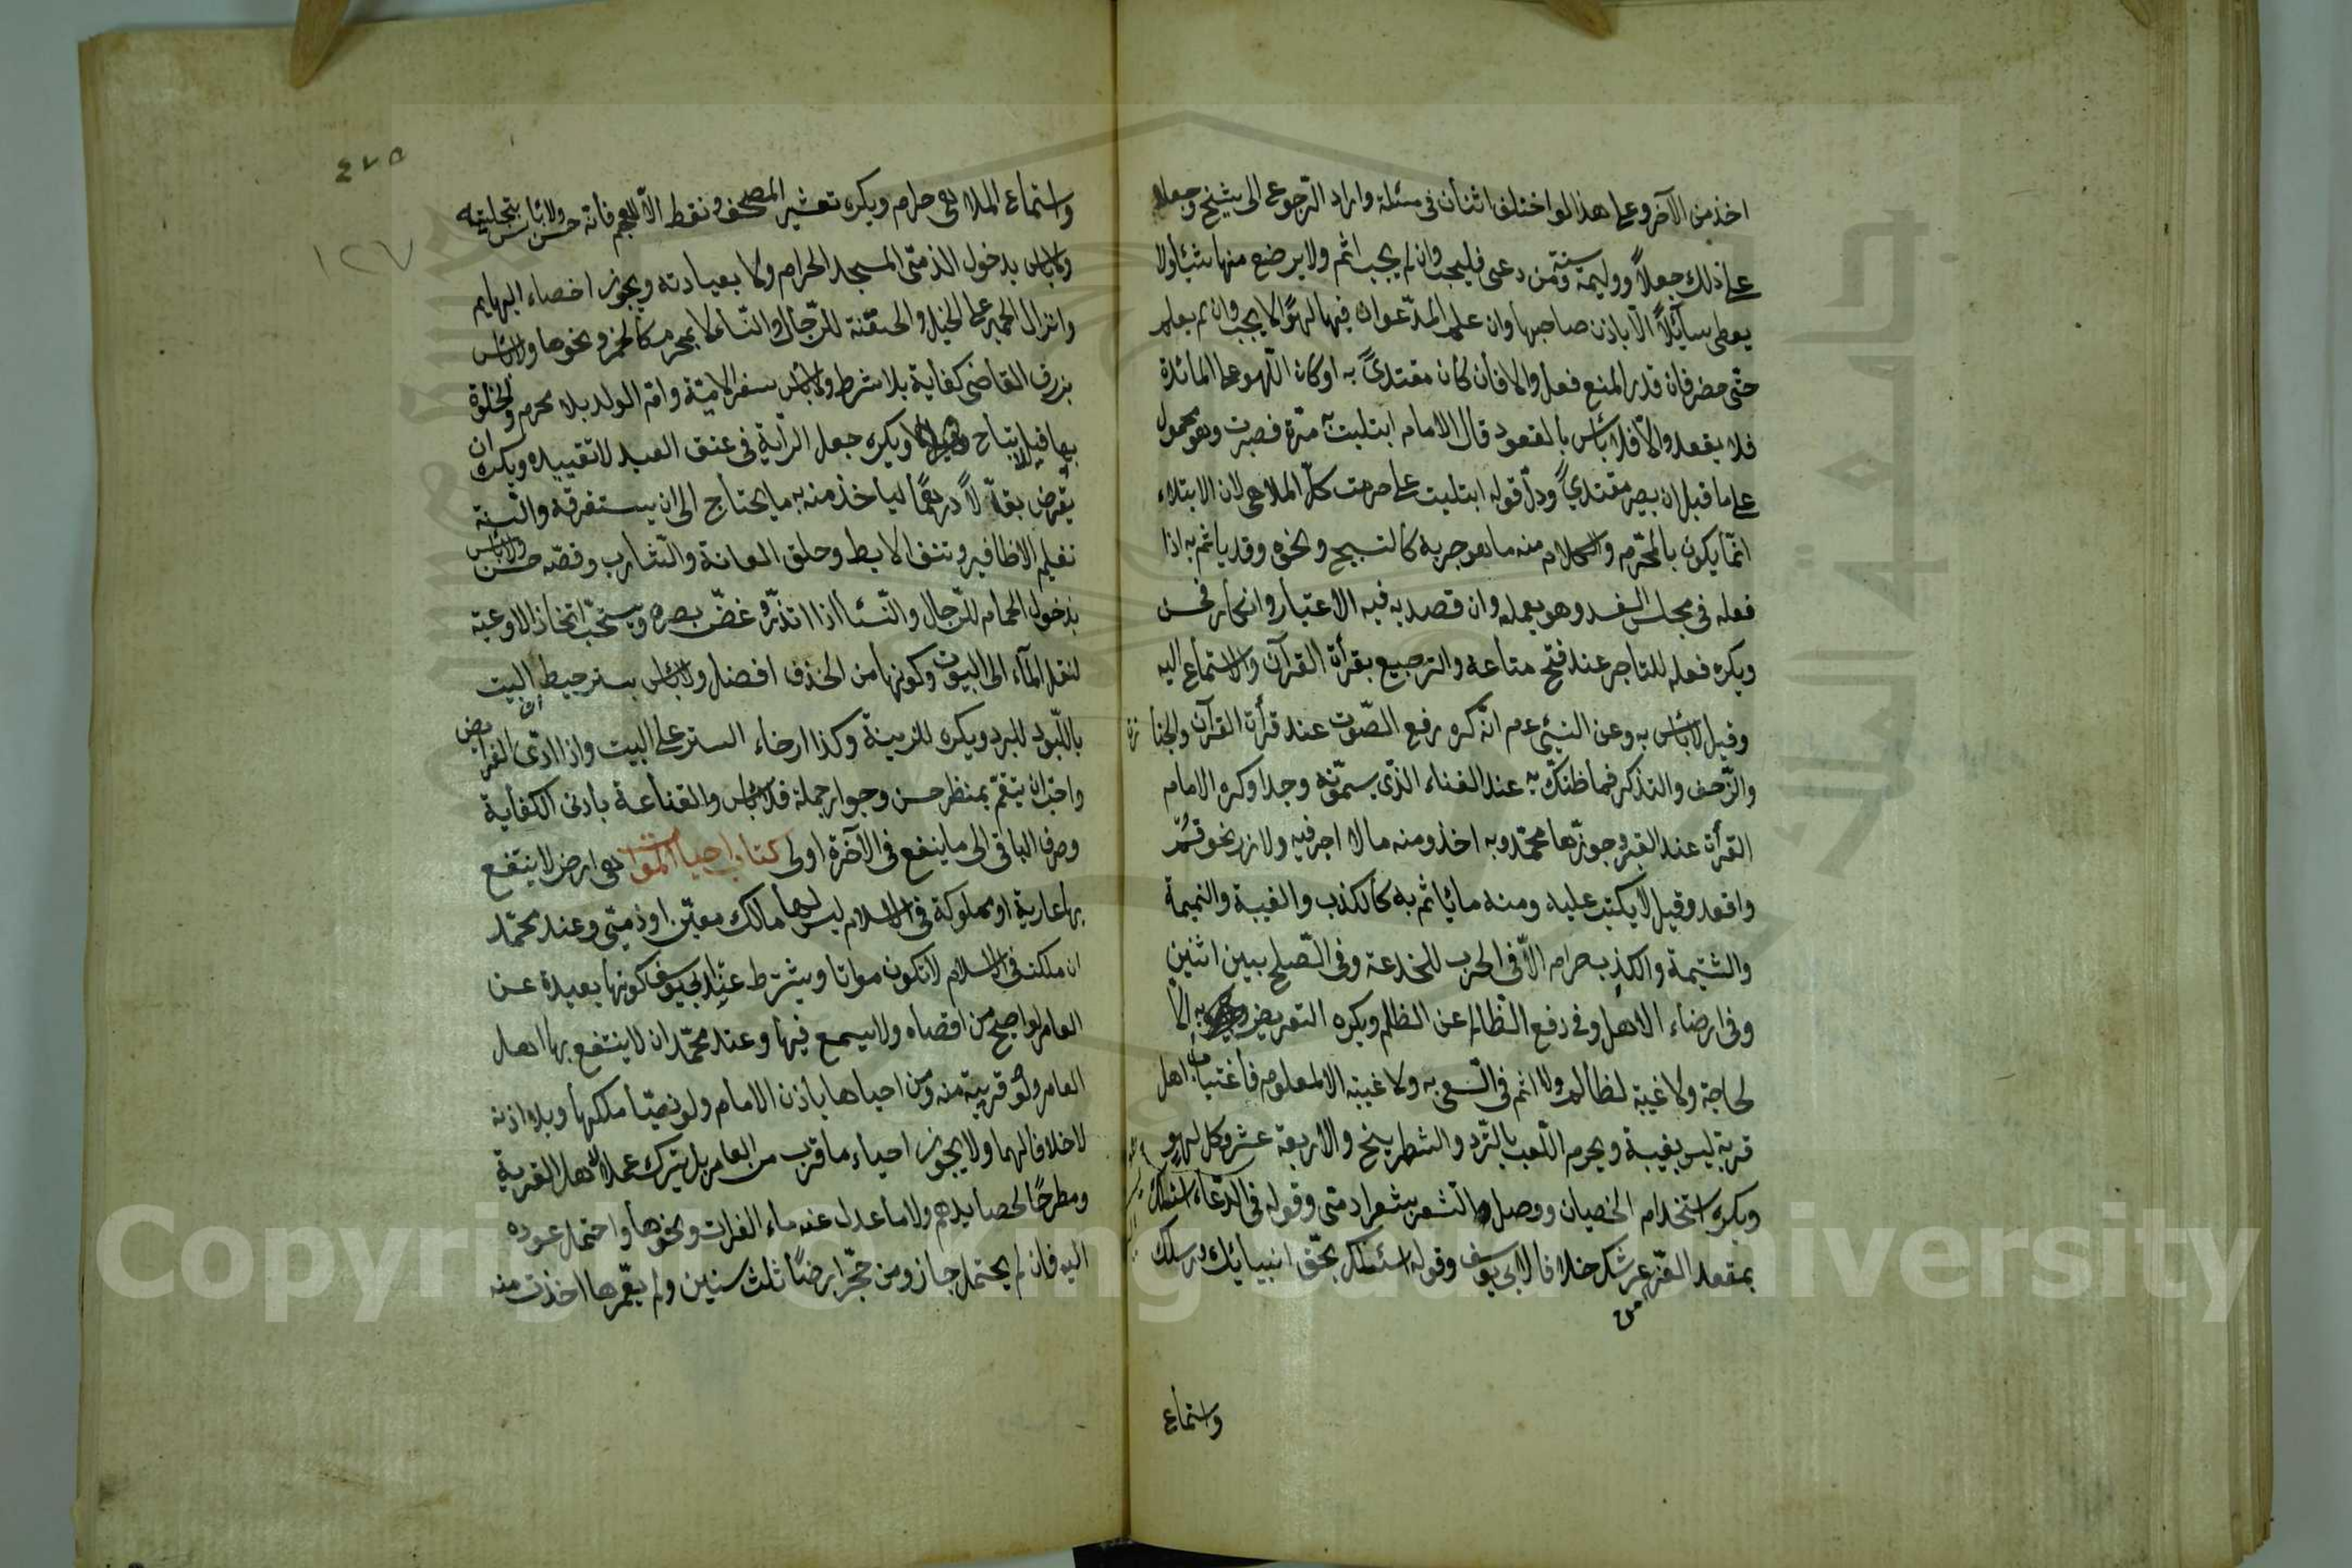 اخذ من الآخر وعلى هذا لو اختلف اثنان فى مسئلة واراد الرجوع الى شيخ وجعلا
على ذلك جعلاً ووليمة سنة ومن دعى فليجب وان لم يجب اثم ولا يرفع منها شيئا ولا
يعطى سائلاً الا باذن صاحبها وان علم المدعو ان فيها لهوًا لا يجيب وان لم يعلم
حتى حضر فان قدر المنع فعل والا فان كان مقتدىً به او كان اللهو على المائدة
فلا يقعد والا فلا بأس بالقعود قال الامام ابتليت به مرة فصبرت وهو محمول
على ما قبل ان يصير مقتدىً ودل قوله ابتليت على حرمت كل الملاهى لان الابتلاء
انما يكون بالمحرم والكلام منه ما يوجر به كالتسبيح ونحوه وقد يأثم به اذا
فعله فى مجلس الفسد وهو يعمله وان قصد به فيه الاعتبار والانكار فحسن
ويكره فعله للتاجر عند فتح متاعه والترجيع بقرأة القرآن والاستماع اليه
وقيل لا بأس به وعن النبى عم انه كره رفع الصوت عند قرأة القرآن والجنازة
والزحف والتذكر فما ظنك به عند الغناء الذى يسمونه وجدا وكره الامام
القرأة عند القبر وجوزها محمد وبه اخذ ومنه ما لا اجر فيه ولا وزر نحو قم
واقعد وقيل لا يكتب عليه ومنه ما يأثم به كالكذب والغيبة والنميمة
والشتيمة والكذب حرام الا فى الحرب للخدعة وفى الصلح بين اثنين
وفى ارضاء الاهل وفى دفع الظالم عن الظلم ويكره التعريض به الا
لحاجة ولا غيبة لظالم ولا اثم فى السعى به ولا غيبة الا لمعلوم فاغتياب اهل
قرية ليس بغيبة ويحرم اللعب بالنرد والشطرنج والاربعة عشر وكل لهو
ويكره استخدام الخصيان ووصل الشعر بشعر ادمى وقوله فى الدعاء اسئلك
بمقعد العز من عرشك خلافا لابى يوسف وقوله اسئلك بحق انبيائك ورسلك
واستماع
٤٧٥
١٢٧
واستماع الملاهى حرام ويكره تعشير المصحف ونقطه الا للعجم فانه حسن ولا بأس بتحليته
ولا بأس بدخول الذمى المسجد الحرام ولا بعيادته ويجوز اخصاء البهايم
وانزال الحمير على الخيل والحقنة للرجال والنساء لا بمحرم كالخمر ونحوها ولا بأس
برزق القاضى كفاية بلا شرط ولا بأس بسفر الامة وام الولد بلا محرم والخلوة
بها قيل يباح وقيل لا ويكره جعل الراية فى عنق العبد لا تقييده ويكره ان
يقرض بقالاً درهمًا ليأخذ منه به ما يحتاج الى ان يستغرقه والسنة
تقليم الاظافير ونتف الابط وحلق العانة والشارب وقصه حسن ولا بأس
بدخول الحمام للرجال والنساء اذا اتذر وغض بصره ويستحب اتخاذ الاوعية
لنقل الماء الى البيوت وكونها من الخذف افضل ولا بأس بستر حيط البيت
باللبود للبرد ويكره للزينة وكذا ارخاء الستر على البيت واذا ادى الفرايض
واحب ان يتنعم بمنظر حسن وجوار جميلة فلا بأس والقناعة بادنى الكفاية
وصرف الباقى الى ما ينفع فى الآخرة اولى كتاب احياء الموات هى ارض لا ينتفع
بها عارية او مملوكة فى الاسلام ليس لها مالك معين او ذمى وعند محمد
ان ملكت فى الاسلام لا تكون مواتا ويشترط عند ابى يوسف كونها بعيدة عن
العامر لو اصيح من اقصاه ولا يسمع فيها وعند محمد ان لا ينتفع بها اهل
العامر ولو قريبة منه ومن احياها باذن الامام ولو ذميا ملكها وبلا اذنه
لا خلافا لهما ولا يجوز احياء ما قرب من العامر بل يترك عملا لاهل القرية
ومطرحًا لحصايدهم ولا ما عدل عنه ماء الفرات ونحوها واحتمل عوده
اليه فان لم يحتمل جاز ومن حجر ارضًا ثلث سنين ولم يعمرها اخذت منه
Copyright © King Saud University